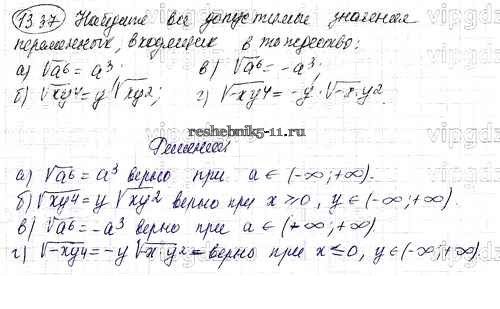 1337 Найдите все допустимые значения
переменных, входящих в тождество:
а) √a6 = a3; в) √a6 = -a3;
б) √xy4 = y √xy2; г) √-xy4 = -y · √-x · y2
reshebnik5-11.ru
Решение
а) √a6 = a3 верно при a ∈ (-∞; +∞).
б) √xy4 = y √xy2 верно при x ≥ 0, y ∈ (-∞; +∞).
в) √a6 = -a3 верно при a ∈ (+∞; +∞).
г) √-xy4 = -y √-x y2 = верно при x ≤ 0, y ∈ (-∞; +∞)